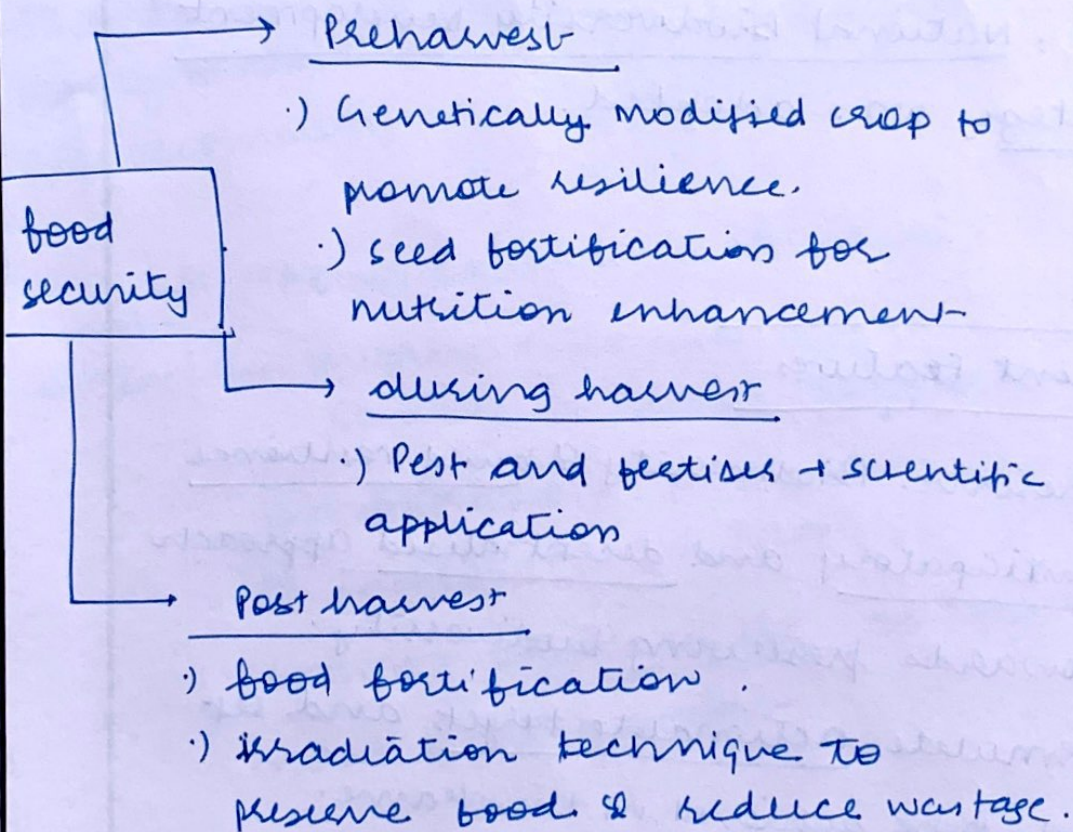 Preharvest
·) Genetically modified crop to
promote resilience.
food
security
·) seed fortification for
nutrition enhancement
during harvest
·) Pest and fertiser + scientific
application
Post harvest
·) food fortification.
·) irradiation technique to
preserve food & reduce wastage.